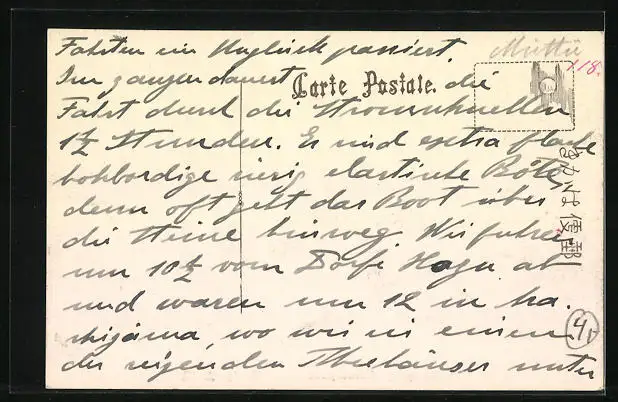 Fahrten ein Unglück passiert.
Im ganzen dauert die
Carte Postale.
Fahrt durch die Stromschnellen
1½ Stunden. Es sind extra flache
hohbordige riesig elastische Böte,
denn oft geht das Boot über
die Steine hinweg. Wir fuhren
um 10½ vom Dorfe Hozu ab
und waren um 12 in Ara-
shijama, wo wir in einem
der reizenden Theehäuser unter
118.
郵便はかき
4